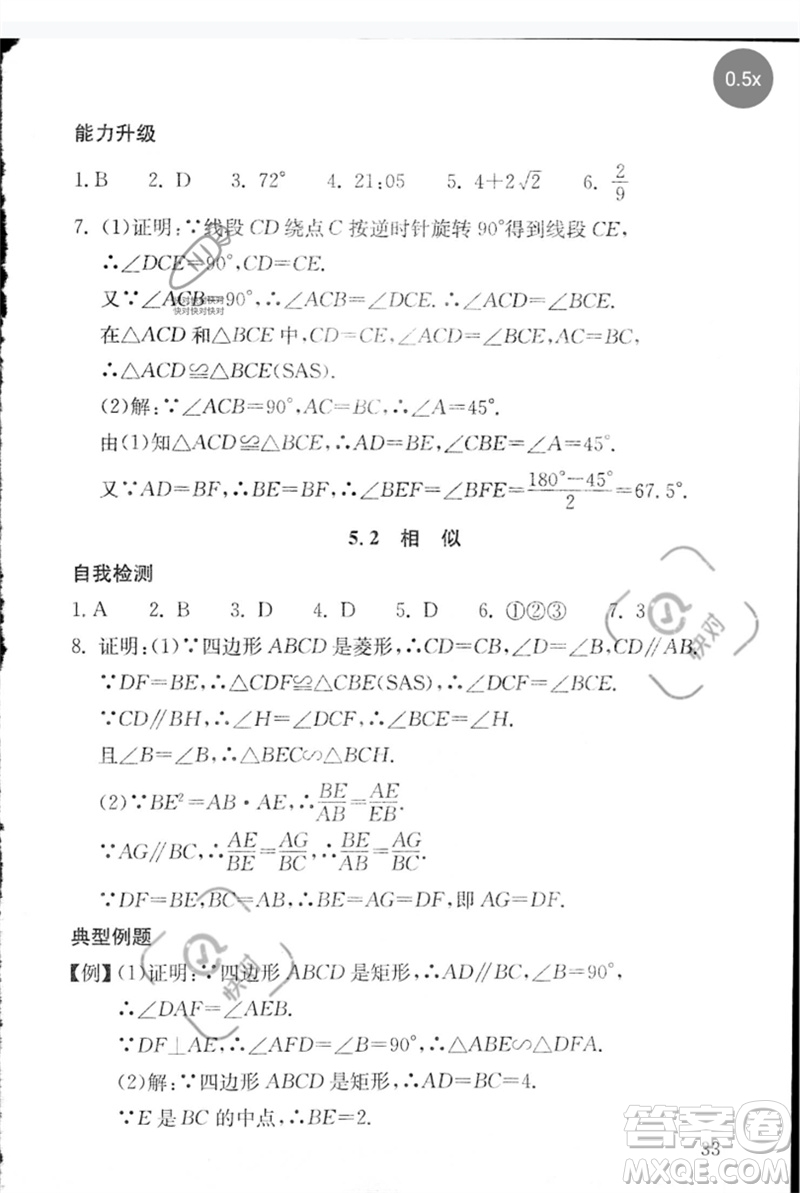 0.5x
能力升级
1. B 2. D 3. 72° 4. 21:05 5. 4+2√2 6. 2/9
7. (1)证明:∵线段 CD 绕点 C 按逆时针旋转 90°得到线段 CE,
∴∠DCE=90°,CD=CE.
又∵∠ACB=90°,∴∠ACB=∠DCE.∴∠ACD=∠BCE.
在△ACD 和△BCE 中,CD=CE,∠ACD=∠BCE,AC=BC,
∴△ACD≌△BCE(SAS).
(2)解:∵∠ACB=90°,AC=BC,∴∠A=45°.
由(1)知△ACD≌△BCE,∴AD=BE,∠CBE=∠A=45°.
又∵AD=BF,∴BE=BF.∴∠BEF=∠BFE=(180°-45°)/2=67.5°.
5.2 相 似
自我检测
1. A 2. B 3. D 4. D 5. D 6. ①②③ 7. 3
8. 证明:(1)∵四边形 ABCD 是菱形,∴CD=CB,∠D=∠B,CD∥AB.
∵DF=BE,∴△CDF≌△CBE(SAS).∴∠DCF=∠BCE.
∵CD∥BH,∴∠H=∠DCF,∴∠BCE=∠H.
且∠B=∠B,∴△BEC∽△BCH.
(2)∵BE²=AB·AE,∴BE/AB=AE/EB.
∵AG∥BC,∴AE/BE=AG/BC,∴BE/AB=AG/BC.
∵DF=BE,BC=AB,∴BE=AG=DF,即 AG=DF.
典型例题
【例】(1)证明:∵四边形 ABCD 是矩形,∴AD∥BC,∠B=90°,
∴∠DAF=∠AEB.
∵DF⊥AE,∴∠AFD=∠B=90°,∴△ABE∽△DFA.
(2)解:∵四边形 ABCD 是矩形,∴AD=BC=4.
∵E 是 BC 的中点,∴BE=2.
33
快对
快对
答案圈
MXQE.COM